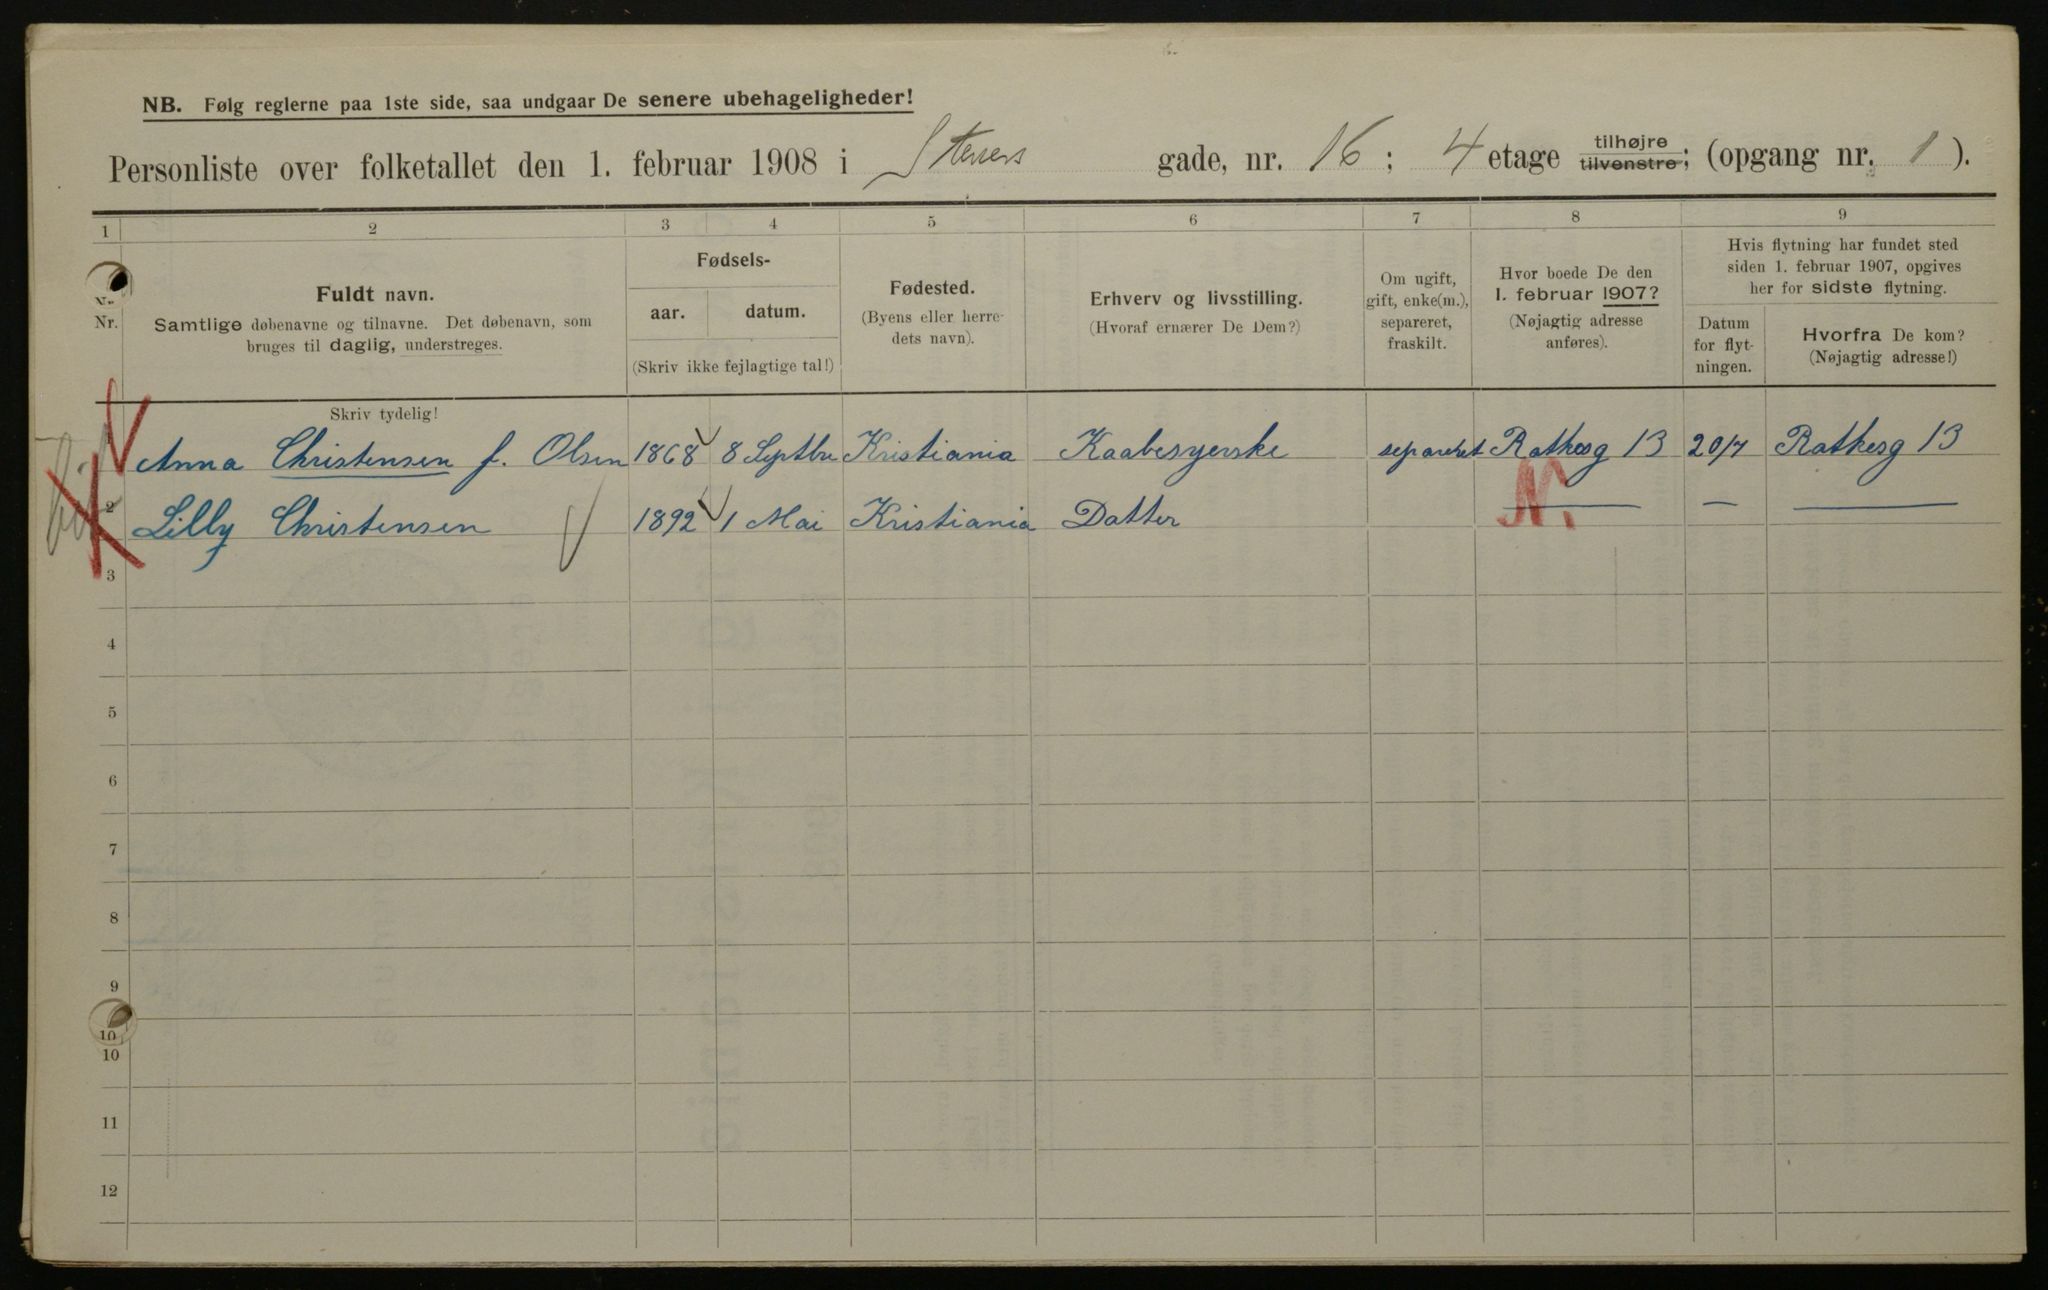 NB. Følg reglerne paa 1ste side, saa undgaar De senere ubehageligheder!
Personliste over folketallet den 1. februar 1908 i Steners gade, nr. 16 ; 4 etage tilhøjre tilvenstre; (opgang nr. 1 ).
1 2 3 4 5 6 7 8 9
Nr.
Fuldt navn.
Samtlige døbenavne og tilnavne. Det døbenavn, som
bruges til daglig, understreges.
Fødsels-
aar. datum.
(Skriv ikke fejlagtige tal!)
Fødested.
(Byens eller herre-
dets navn).
Erhverv og livsstilling.
(Hvoraf ernærer De Dem?)
Om ugift,
gift, enke(m.),
separeret,
fraskilt.
Hvor boede De den
1. februar 1907?
(Nøjagtig adresse
anføres).
Hvis flytning har fundet sted
siden 1. februar 1907, opgives
her for sidste flytning.
Datum
for flyt-
ningen.
Hvorfra De kom?
(Nøjagtig adresse!)
Skriv tydelig!
1 Anna Christensen f. Olsen 1868 8 Septbr Kristiania Kaabesyerske separeret Rathesg 13 20/7 Rathesg 13
2 Lilly Christensen 1892 1 Mai Kristiania Datter — — —
N.
3
4
5
6
7
8
9
10
10
11
12